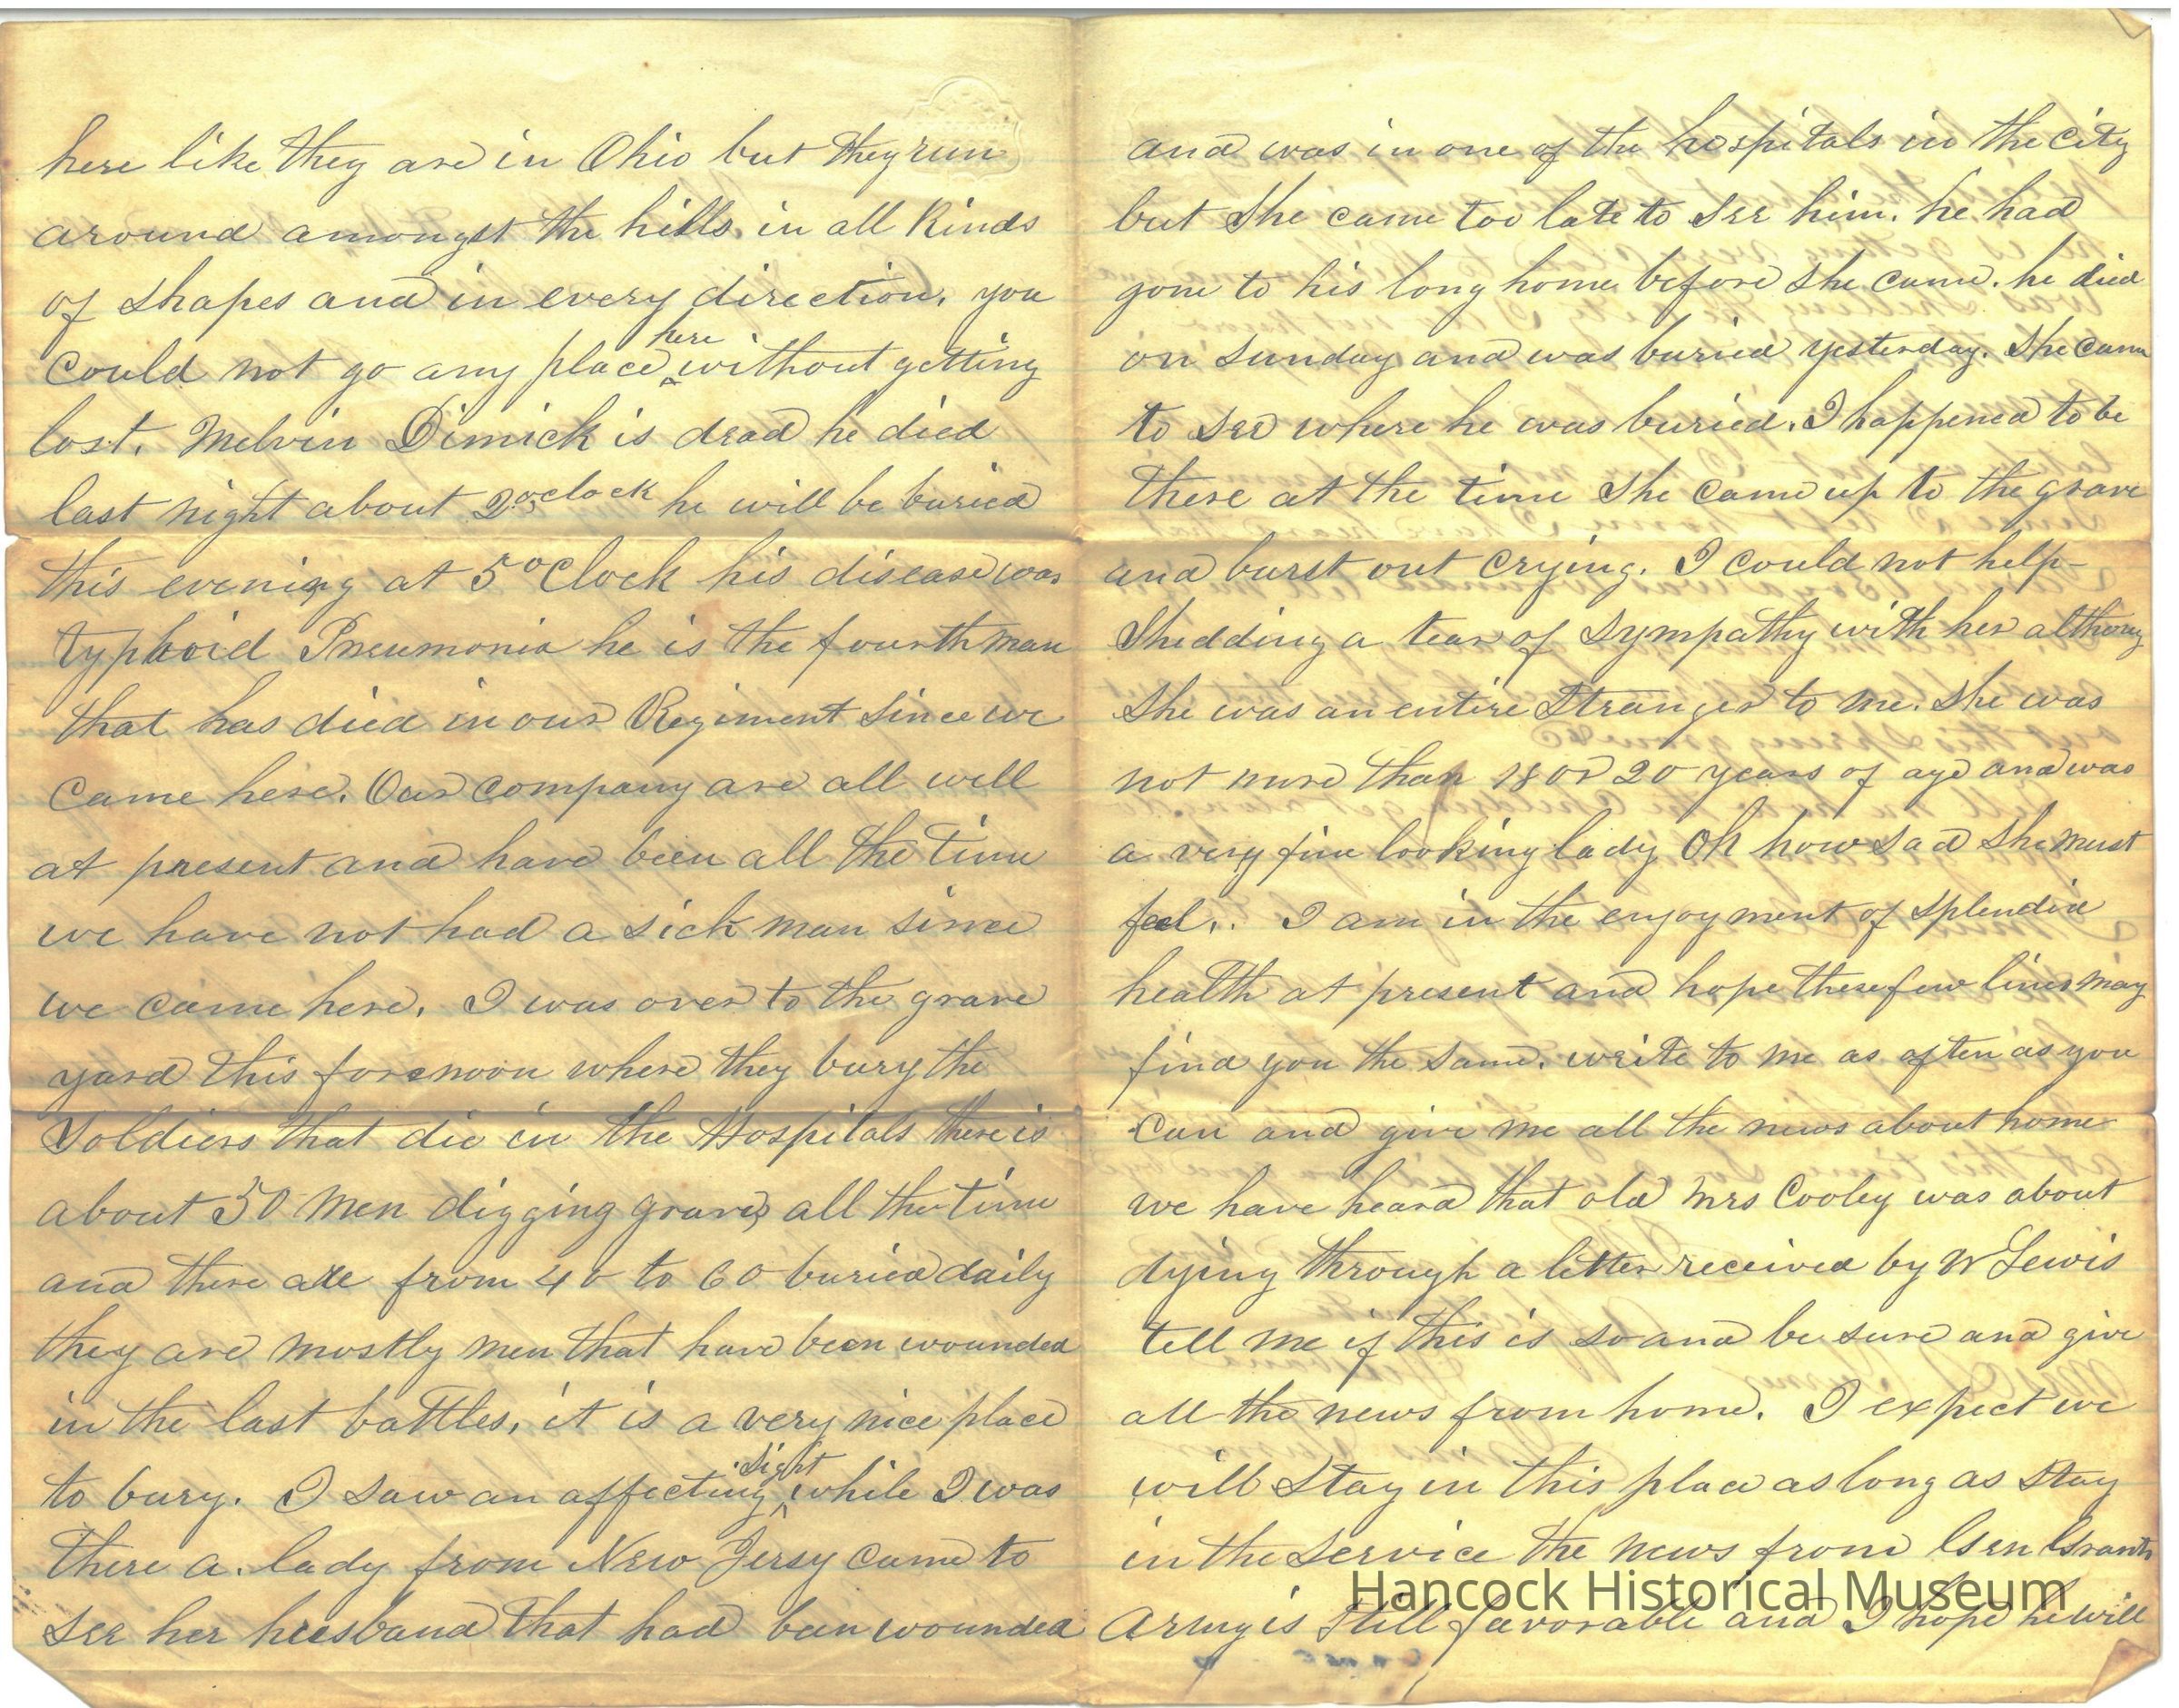 here like they are in Ohio but they run
around amongst the hills in all kinds
of shapes and in every direction, you
could not go any place here without getting
lost. Melvin Dimick is dead he died
last night about 2 oclock he will be buried
this evening at 5 oClock his disease was
typhoid Pneumonia he is the fourth man
that has died in our Regiment since we
came here. Our company are all well
at present and have been all the time
we have not had a sick man since
we came here. I was over to the grave
yard this forenoon where they bury the
Soldiers that die in the Hospitals there is
about 50 men digging graves all the time
and there are from 40 to 60 buried daily
they are mostly men that have been wounded
in the last battles, it is a very nice place
to bury. I saw an affecting sight while I was
there a lady from New Jersy came to
see her husband that had been wounded
and was in one of the hospitals in the city
but She came too late to see him. he had
gone to his long home before she came. he died
on Sunday and was buried yesterday. She came
to see where he was buried. I happened to be
there at the time She came up to the grave
and burst out crying. I could not help
Shedding a tear of Sympathy with her althoug
She was an entire Stranger to me. She was
not more than 18 or 20 years of age and was
a very fine looking lady Oh how sad She must
feel.. I am in the enjoyment of splendid
health at present and hope these few lines may
find you the same. write to me as often as you
can and give me all the news about home
we have heard that old Mrs Cooley was about
dying through a letter received by W Lewis
tell me if this is so and be sure and give
all the news from home. I expect we
will Stay in this place as long as Stay
in the Service the news from Gen Grants
Army is Still favorable and I hope he will
Hancock Historical Museum